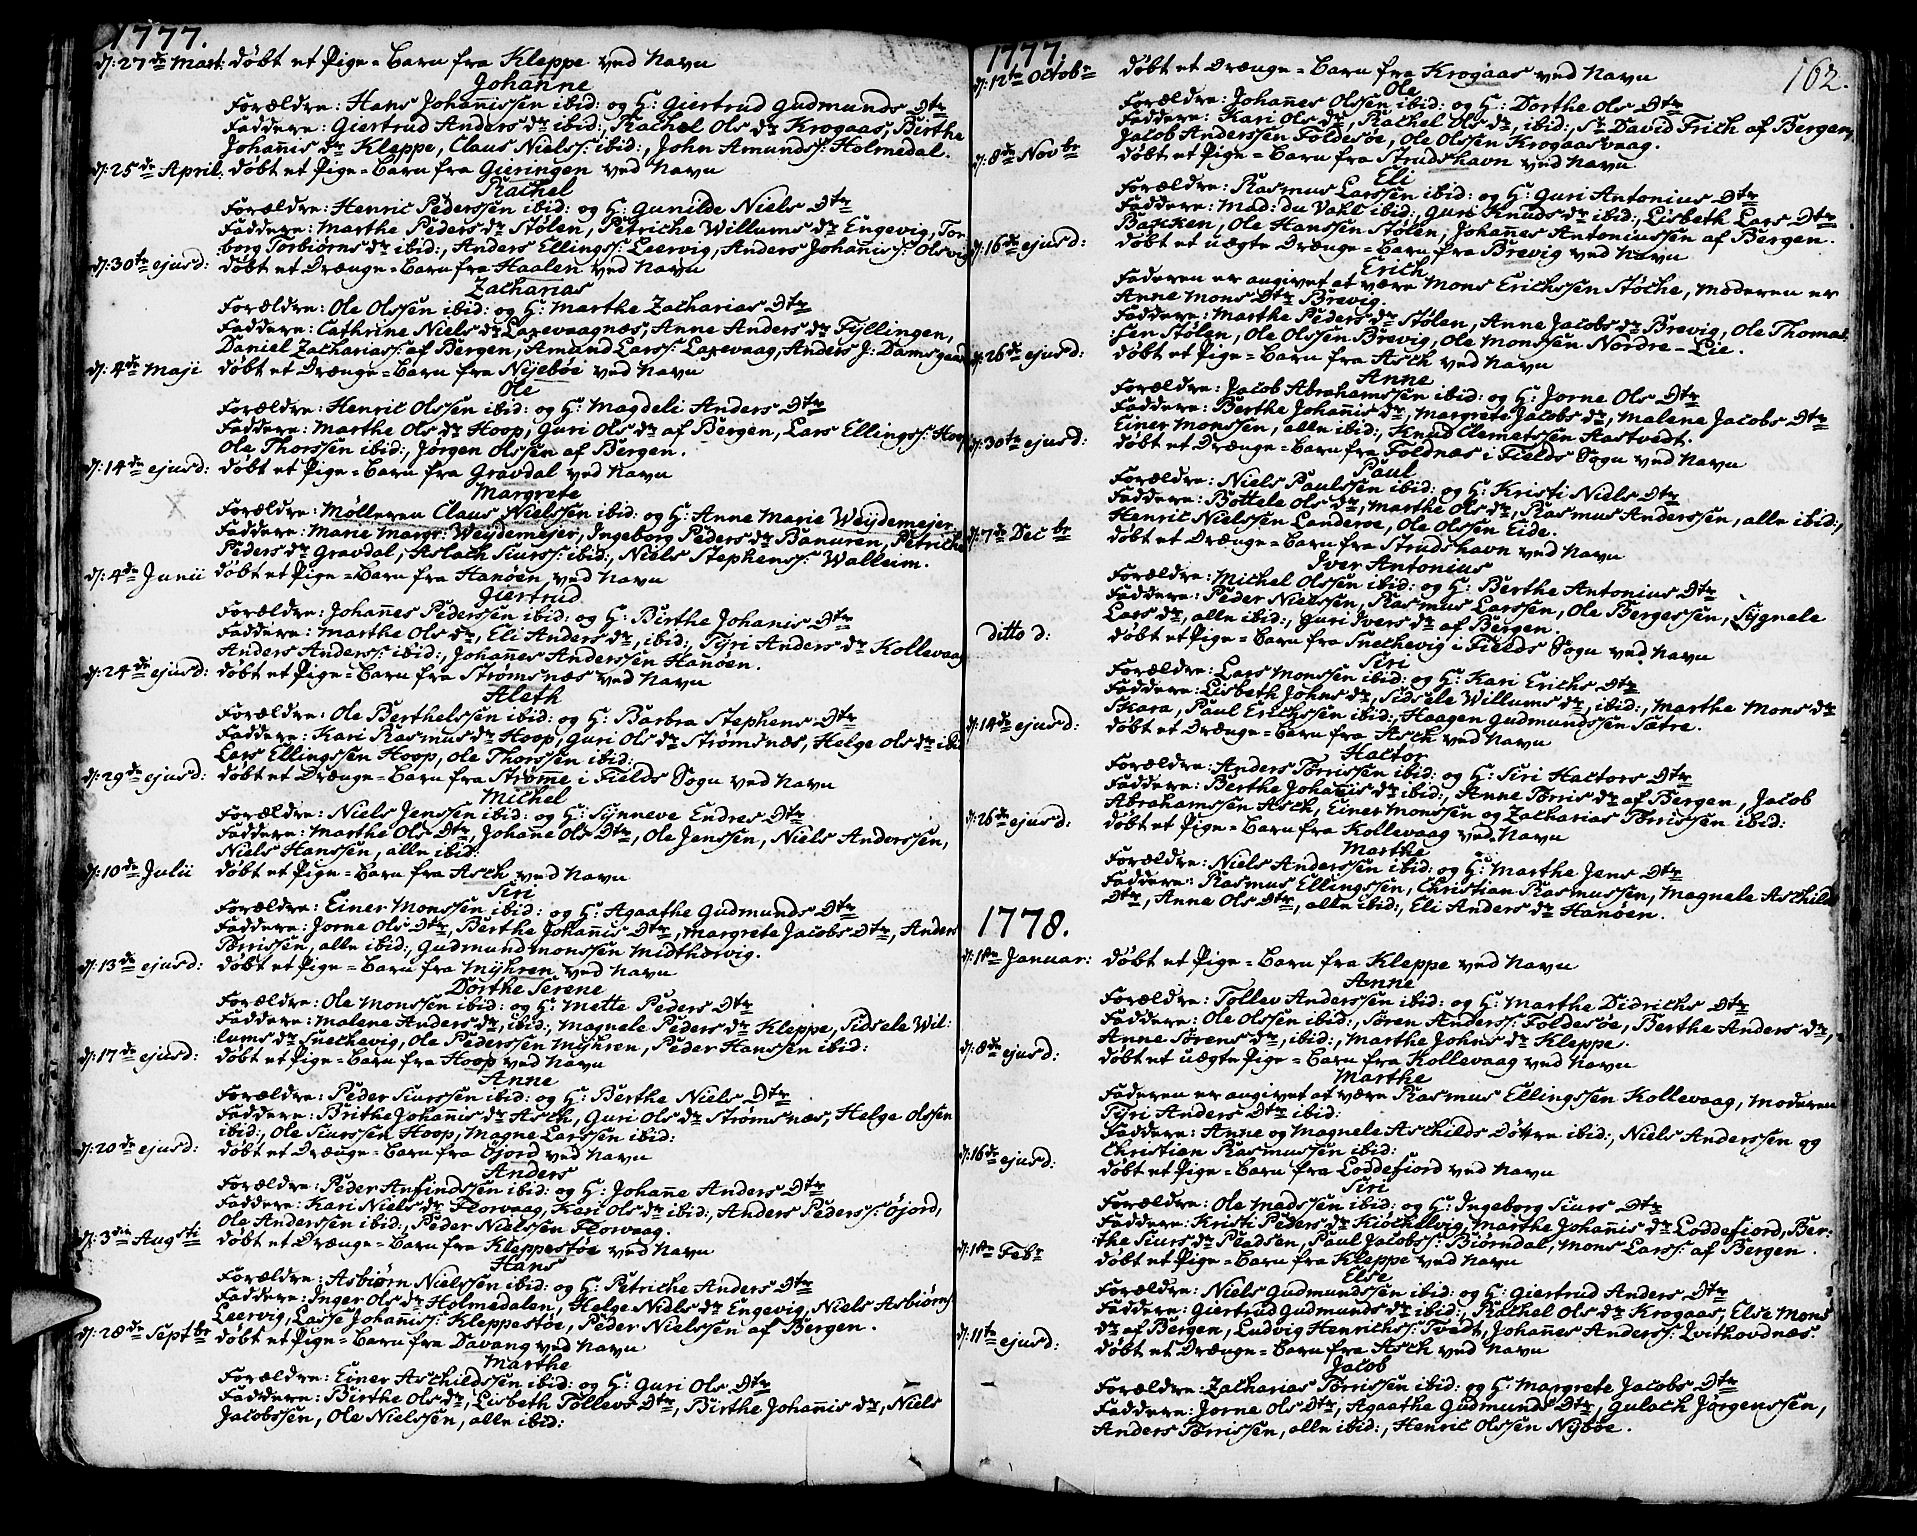 1777.
d: 27de Mart: døbt et Pige=Barn fra Kleppe ved Navn
Johanne
Forældre: Hans Johannissen ibid: og H: Giertrud Gudmunds Dtr
Faddere: Giertrud Anders dr ibid:, Rachel Ols dr Krogaas, Birthe
Johannis dr Kleppe, Claus Nielss: ibid:, John Amunds: Holmedal.
d: 25de April. døbt et Pige=Barn fra Gieringen ved Navn
Rachel
Forældre: Henric Pederssen ibid: og H: Gunilde Niels Dtr
Faddere: Marthe Peders dr Stølen, Petriche Willums dr Engevig, Tor
borg Torbiørns dr ibid:, Anders Ellings: Leervig, Anders Johannis: Olsvig
d: 30te ejusd: døbt et Drænge=Barn fra Haalen ved Navn
Zacharias
Forældre: Ole Olssen ibid: og H: Marthe Zacharias Dtr
Faddere: Cathrine Niels dr Laxevaagnæs, Anne Anders dr Fyllingen,
Daniel Zacharias: af Bergen, Amund Larss: Laxevaag, Anders J: Damsgaard
d: 4de Maji døbt et Drænge=Barn fra Nijebøe ved Navn
Ole
Forældre: Henric Olssen ibid: og H: Magdeli Anders Dtr
Faddere: Marthe Ols dr Hoop, Guri Ols dr af Bergen, Lars Ellings: Hoop
Ole Thorssen ibid:, Jørgen Olssen af Bergen.
d: 14de ejusd: døbt et Pige=Barn fra Gravdal ved Navn
Margrete
Forældre: Mølleren Claus Nielssen ibid: og H: Anne Marie Weydemejer
Faddere: Marie Margr: Weydemejer, Ingeborg Peders dr Banuren, Petriche
Peders dr Gravdal, Aslach Siurss: ibid:, Niels Stephens: Wallum.
d: 4de Junii døbt et Pige=Barn fra Hanøen, ved Navn
Giertrud
Forældre: Johannes Pederssen ibid: og H: Birthe Johanis Dtr
Faddere: Marthe Ols dr, Eli Anders dr, ibid:, Tyri Anders dr Kollevaag
Anders Anders: ibid:, Johannes Anderssen Hanøen.
d: 24de ejusd: døbt et Pige=Barn fra Strømsnæs ved Navn
Aleth
Forældre: Ole Berthelssen ibid: og H: Barbra Stephens Dtr
Faddere: Kari Rasmus dr Hoop, Guri Ols dr Strømsnæs, Helge Ols dr ibid
Lars Ellingssen Hoop, Ole Thorssen ibid:
d: 29de ejusd: døbt et Drænge=Barn fra Strømme i Fields Sogn ved Navn
Michel
Forældre: Niels Jenssen ibid: og H: Synneve Endres Dtr
Faddere: Marthe Ols Dtr, Johanne Ols Dtr, Ole Jenssen, Niels Anderssen,
Niels Hanssen, alle ibid:
d: 10de Julii døbt et Pige=Barn fra Asch ved Navn
Siri
Forældre: Einer Monssen ibid: og H: Agaathe Gudmunds Dtr
Faddere: Jorne Ols Dtr, Berthe Johannis Dtr, Margrete Jacobs Dtr, Anders
Tørrissen, alle ibid:, Gudmund Monssen Midthorvig.
d: 13de ejusd: døbt et Pige=Barn fra Myhren ved Navn
Dorthe Serene
Forældre: Ole Monssen ibid: og H: Mette Peders Dtr
Faddere: Malene Anders dr, ibid:, Magnele Peders dr Kleppe, Sidsele Wil:
:lums dr Snechevig, Ole Pederssen Myhren, Peder Hanssen ibid:
d: 17de ejusd: døbt et Pige=Barn fra Hoop ved Navn
Anne
Forældre: Peder Siurssen ibid: og H: Berthe Niels Dtr
Faddere: Brithe Johannis dr Asch, Guri Ols dr Strømsnæs, Helge Olssen
ibid:, Ole Siurssen Hoop, Magne Larssen ibid:
d: 20de ejusd: døbt et Drænge=Barn fra Øjord ved Navn
Anders
Forældre: Peder Anfindssen ibid: og H: Johanne Anders Dtr
Faddere: Kari Niels dr Florvaag, Kari Ols dr ibid:, Anders Peders: Øjord,
Ole Anderssen ibid:, Peder Nielssen Florvaag.
d: 3die Augsti døbt et Drænge=Barn fra Kleppestøe ved Navn
Hans
Forældre: Asbiørn Nielssen ibid: og H: Petriche Anders Dtr
Faddere: Inger Ols dr Holmedalen, Helge Niels dr Engevig, Niels Asbiørns
Leervig, Lasse Johanis: Kleppestøe, Peder Nielssen af Bergen.
d: 28de Septbr døbt et Pige=Barn fra Davang ved Navn
Marthe
Forældre: Einer Aschildssen ibid: og H: Guri Ols Dtr
Faddere: Birthe Ols dr, Lisbeth Tollevs Dtr, Birthe Johannis dr, Niels
Jacobssen, Ole Nielssen, alle ibid:
1777.
162.
d: 12te Octobr døbt et Drænge=Barn fra Krogaas ved Navn
Ole
Forældre: Johannes Olssen ibid: og H: Dorthe Ols Dtr
Faddere: Kari Ols dr, Rachel Ols dr, ibid:, Sr David Frich af Bergen,
Jacob Anderssen Foldesøe, Ole Olssen Krogaasvaag.
d: 8de Novbr døbt et Pige=Barn fra Strudshavn ved Navn
Eli
Forældre: Rasmus Larssen ibid: og H: Guri Antonius Dtr
Faddere: Mad: du Vahl ibid:, Guri Knuds dr ibid:, Lisbeth Lars Dtr
Bakken, Ole Hanssen Stølen, Johannes Antoniussen af Bergen.
d: 16de ejusd: døbt et uægte Drænge=Barn fra Brevig ved Navn
Erich
Faderen er angivet at være Mons Erichssen Støche, Moderen er
Anne Mons Dtr Brevig.
Faddere: Marthe Peders dr Stølen, Anne Jacobs dr Brevig, Ole Thomas:
:sen Stølen, Ole Olssen Brevig, Ole Monssen Nordre-Lie.
d: 26de ejusd: døbt et Pige=Barn fra Asch ved Navn
Anne
Forældre: Jacob Abrahamssen ibid: og H: Jorne Ols Dtr
Faddere: Berthe Johannis dr, Margrete Jacobs dr, Malene Jacobs Dtr
Einer Monssen, alle ibid:, Knud Clemetssen Hastvedt.
d: 30te ejusd: døbt et Drænge=Barn fra Foldnæs i Fields Sogn ved Navn
Paul
Forældre: Niels Paulssen ibid: og H: Kristi Niels Dtr
Faddere: Bottele Ols dr, Marthe Ols dr, Rasmus Anderssen, alle ibid:,
Henric Nielssen Landeroe, Ole Olssen Eide.
d: 7de Decbr døbt et Drænge=Barn fra Strudshavn ved Navn
Iver Antonius
Forældre: Michel Olssen ibid: og H: Berthe Antonius Dtr
Faddere: Peder Nielssen, Rasmus Larssen, Ole Bergessen, Sygnele
Lars dr, alle ibid:, Guri Ivers dr af Bergen.
ditto d: døbt et Pige=Barn fra Snechevig i Fields Sogn ved Navn
Siri
Forældre: Lars Monssen ibid: og H: Kari Erichs Dtr
Faddere: Lisbeth Johns dr, Sidsele Willums dr, ibid:, Marthe Mons dr
Skara, Paul Erichssen ibid:, Haagen Gudmundssen Sætre.
d: 14de ejusd: døbt et Drænge=Barn fra Asch ved Navn
Hactor
Forældre: Anders Tørrissen ibid: og H: Siri Hactors Dtr
Faddere: Berthe Johannis dr ibid:, Anne Tørris dr af Bergen, Jacob
Abrahamssen Asch, Einer Monssen og Zacharias Tørrissen ibid:
d: 26de ejusd: døbt et Pige=Barn fra Kollevaag ved Navn
Marthe
Forældre: Niels Anderssen ibid: og H: Marthe Jens Dtr
Faddere: Rasmus Ellingssen, Christian Rasmussen, Magnele Aschilds
Dtr, Anne Ols Dtr, alle ibid:, Eli Anders dr Hanøen.
1778.
d: 1te Januar: døbt et Pige=Barn fra Kleppe ved Navn
Anne
Forældre: Tollev Anderssen ibid: og H: Marthe Didrichs Dtr
Faddere: Ole Olssen ibid:, Søren Anders: Foldesøe, Berthe Anders dr,
Anne Sørens dr, ibid:, Marthe Johns dr Kleppe.
d: 8de ejusd: døbt et uægte Pige=Barn fra Kollevaag ved Navn
Marthe
Faderen er angivet at være Rasmus Ellingssen Kollevaag, Moderen
Tyri Anders Dtr ibid:
Faddere: Anne og Magnele Aschilds Døttre ibid:, Niels Anderssen og
Christian Rasmussen ibid:
d: 16de ejusd: døbt et Pige=Barn fra Loddefiord ved Navn
Siri
Forældre: Ole Madssen ibid: og H: Ingeborg Siurs Dtr
Faddere: Kristi Peders dr Kiøchelvig, Marthe Johannis dr Loddefiord, Ber:
:the Siurs dr Pladsen, Paul Jacobs: Biørndal, Mons Larss: af Bergen.
d: 1te Febr døbt et Pige=Barn fra Kleppe ved Navn
Else
Forældre: Niels Gudmundssen ibid: og H: Giertrud Anders Dtr
Faddere: Giertrud Gudmunds dr ibid:, Rachel Ols dr Krogaas, Else Mons
dr af Bergen, Ludvig Henrichs: Tvedt, Johannes Anders: Qvithovdnæs
d: 11te ejusd: døbt et Drænge=Barn fra Asch ved Navn
Jacob
Forældre: Zacharias Tørrissen ibid: og H: Margrete Jacobs Dtr
Faddere: Jorne Ols Dtr, Agaathe Gudmunds Dtr, Gulach Jørgenssen,
Anders Tørrissen, alle ibid:, Henric Olssen Nybøe.